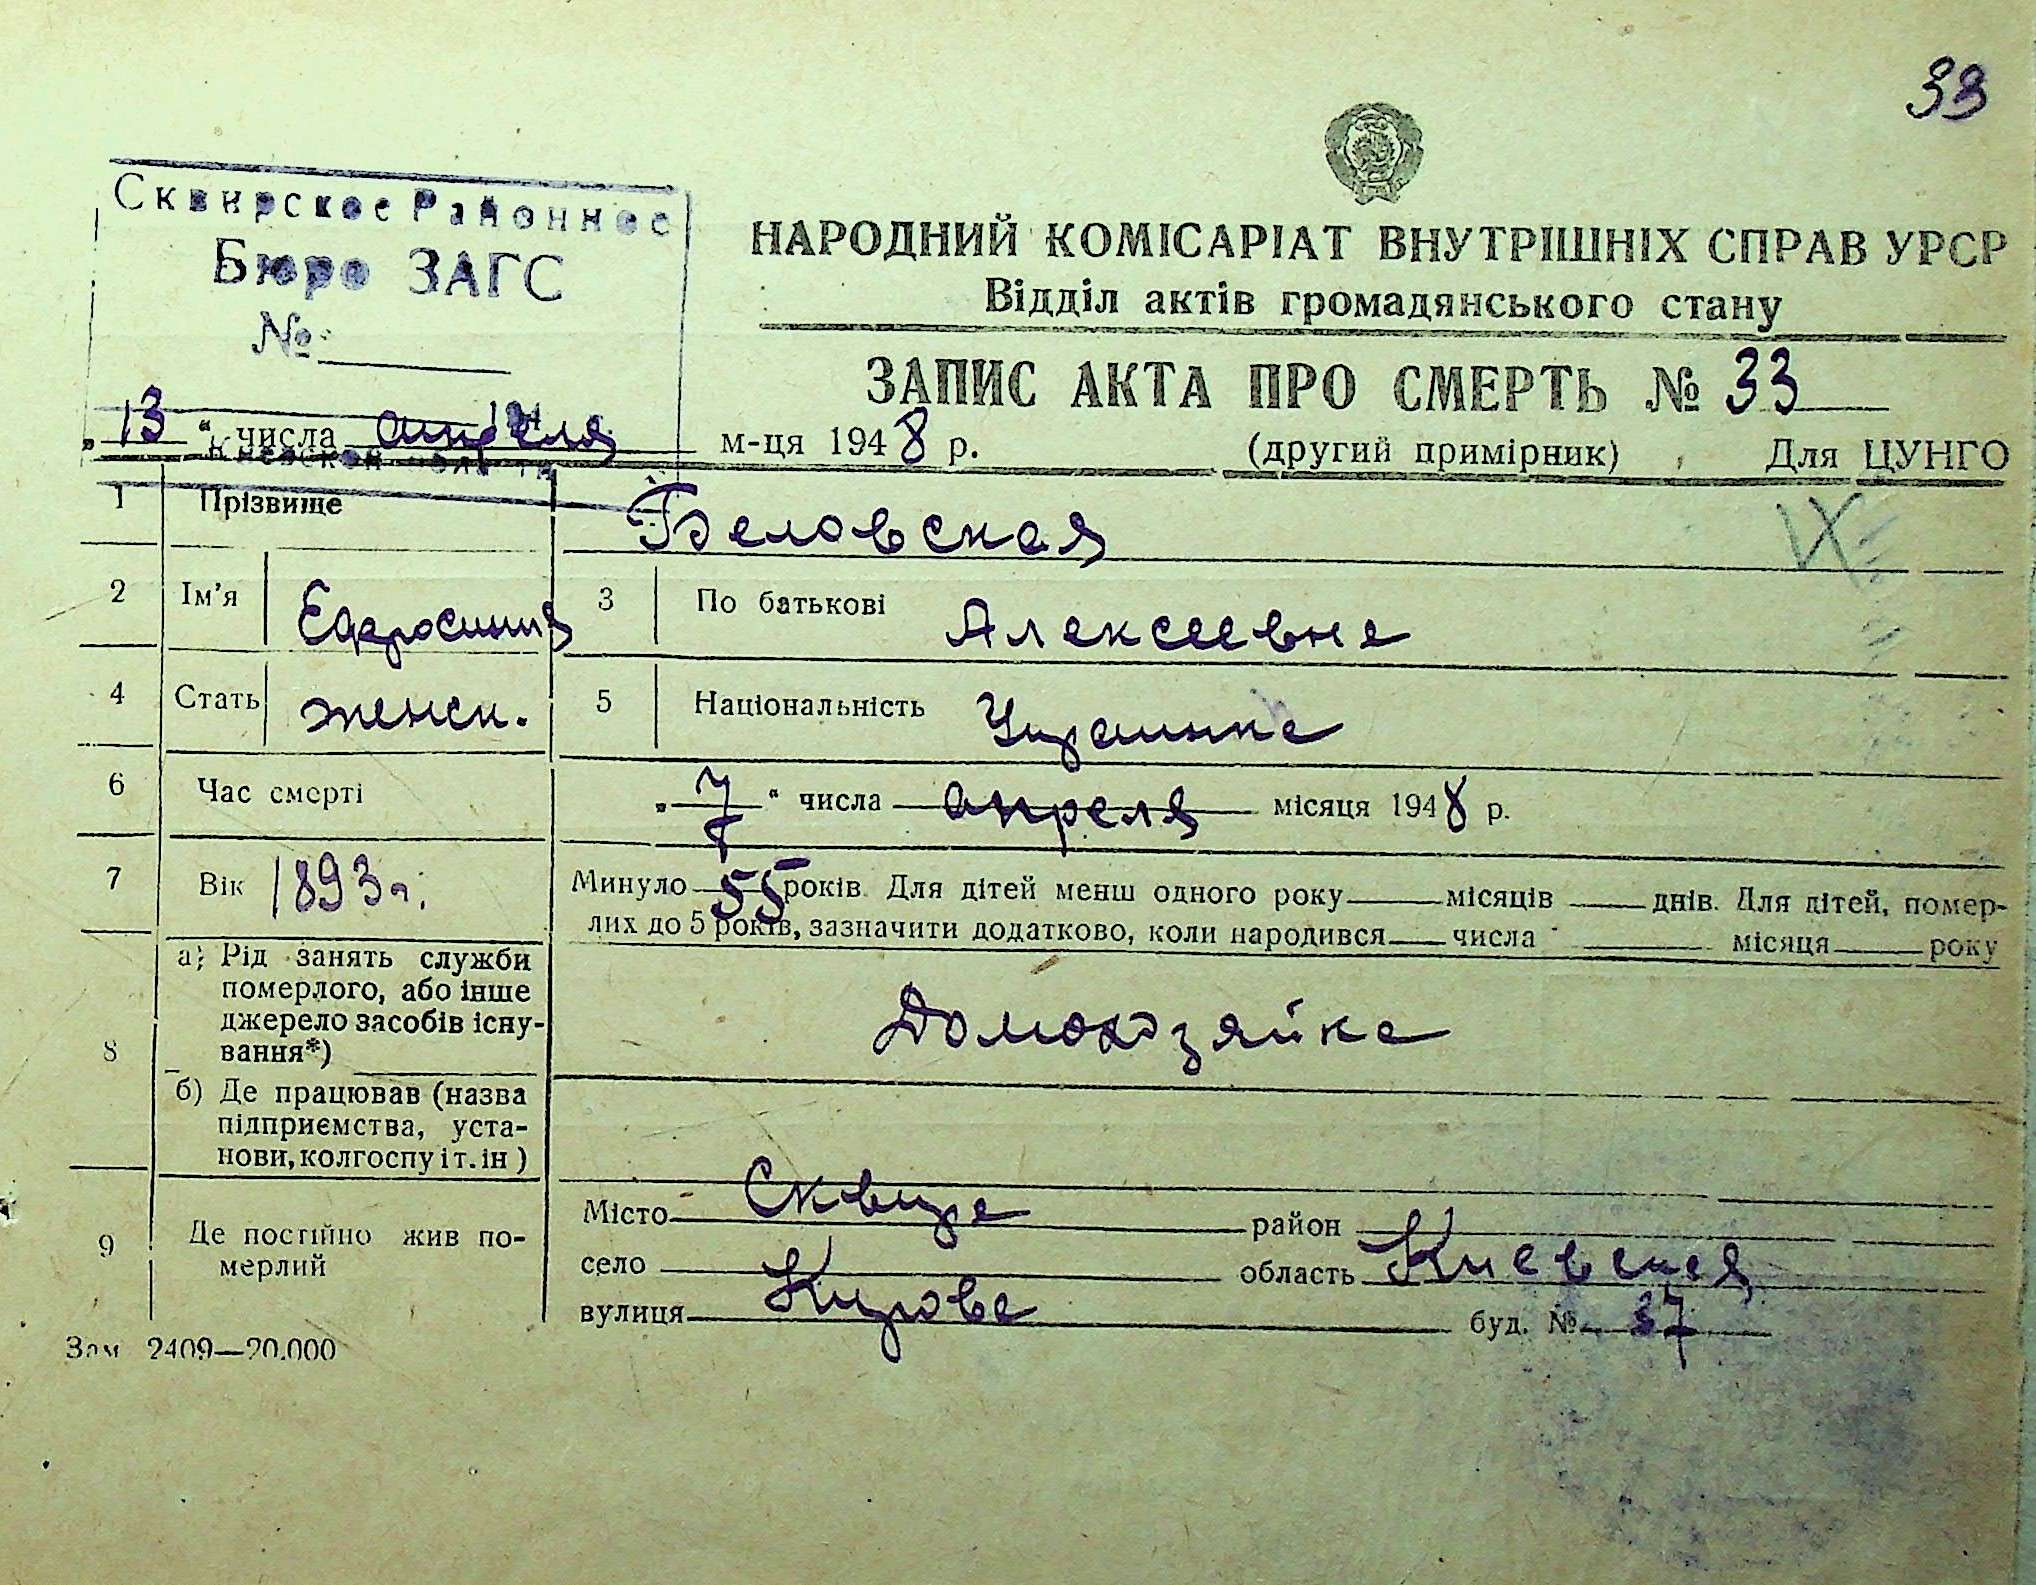 33
Сквирское Районное
Бюро ЗАГС
№
194
Киевской
НАРОДНИЙ КОМІСАРІАТ ВНУТРІШНІХ СПРАВ УРСР
Відділ актів громадянського стану
ЗАПИС АКТА ПРО СМЕРТЬ № 33
„13“ числа апреля м-ця 1948 р. (другий примірник) Для ЦУНГО
1 Прізвище Беловская
IX
2 Ім'я Ефросиния 3 По батькові Алексеевна
4 Стать женск. 5 Національність Украинка
6 Час смерті „7“ числа апреля місяця 1948 р.
7 Вік 1893 г. Минуло 55 років. Для дітей менш одного року місяців днів. Для дітей, помер-
лих до 5 років, зазначити додатково, коли народився числа місяця року
8 а) Рід занять служби
померлого, або інше
джерело засобів існу-
вання*)
Домохозяйка
б) Де працював (назва
підприємства, уста-
нови, колгоспу і т. ін )
9 Де постійно жив по-
мерлий
Місто Сквира район
село область Киевская
вулиця Кирова буд. № 37
Зам 2409—20.000